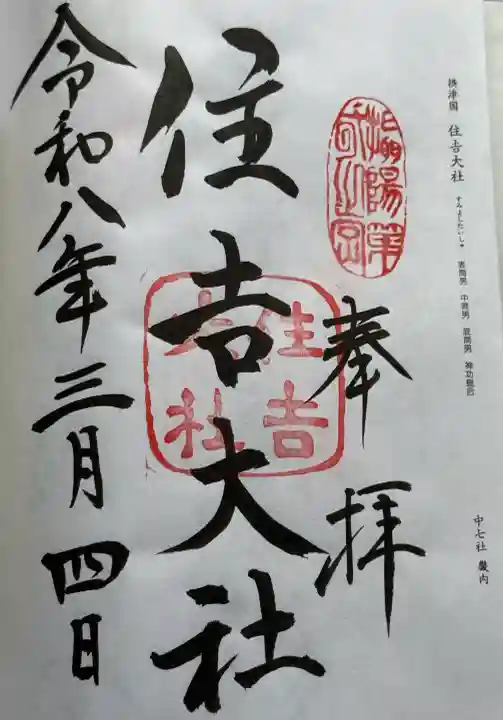 摂津国 住吉大社 すみよしたいしゃ 表筒男 中筒男 底筒男 神功皇后
中七社 畿内
奉拝
住吉大社
住吉大社
令和八年三月四日